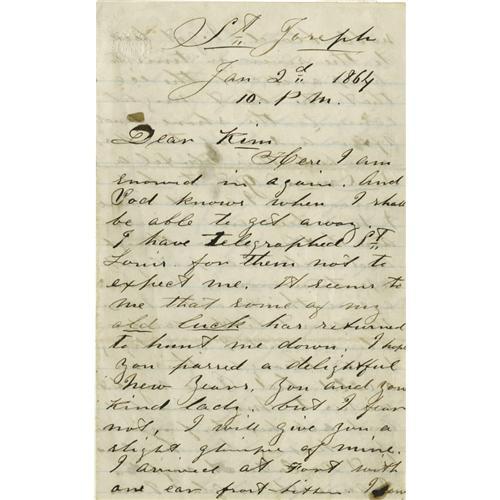 St Joseph
Jan 2d 1864
10. P.M.
Dear Kim
Here I am
snowed in again. And
God knows when I shall
be able to get away.
I have telegraphed St
Louis for them not to
expect me. It seems to
me that some of my
old luck has returned
to hunt me down. I hope
you passed a delightful
New Years. you and you
kind lady. but I fear
not, I will give you a
slight glimpse of mine.
I arrived at Fort with
one ear frost-bitten I